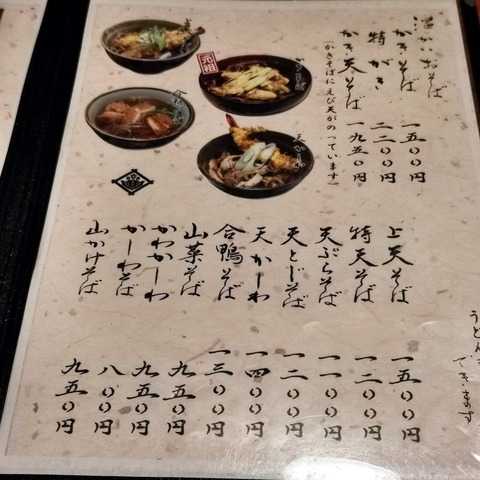 温かいおそば
かきそば 一五〇〇円
特がき 二二〇〇円
かき天そば 一九五〇円
(かきそばにえび天がのっています)
元祖
かきそば
天かしわ
上天そば 一五〇〇円
特天そば 一二〇〇円
天ぷらそば 一一〇〇円
天とじそば 一二〇〇円
天かしわ 一四〇〇円
合鴨そば 一三〇〇円
山菜そば 九五〇円
かわかしわ 九五〇円
かしわそば 八〇〇円
山かけそば 九五〇円
うどん
できます